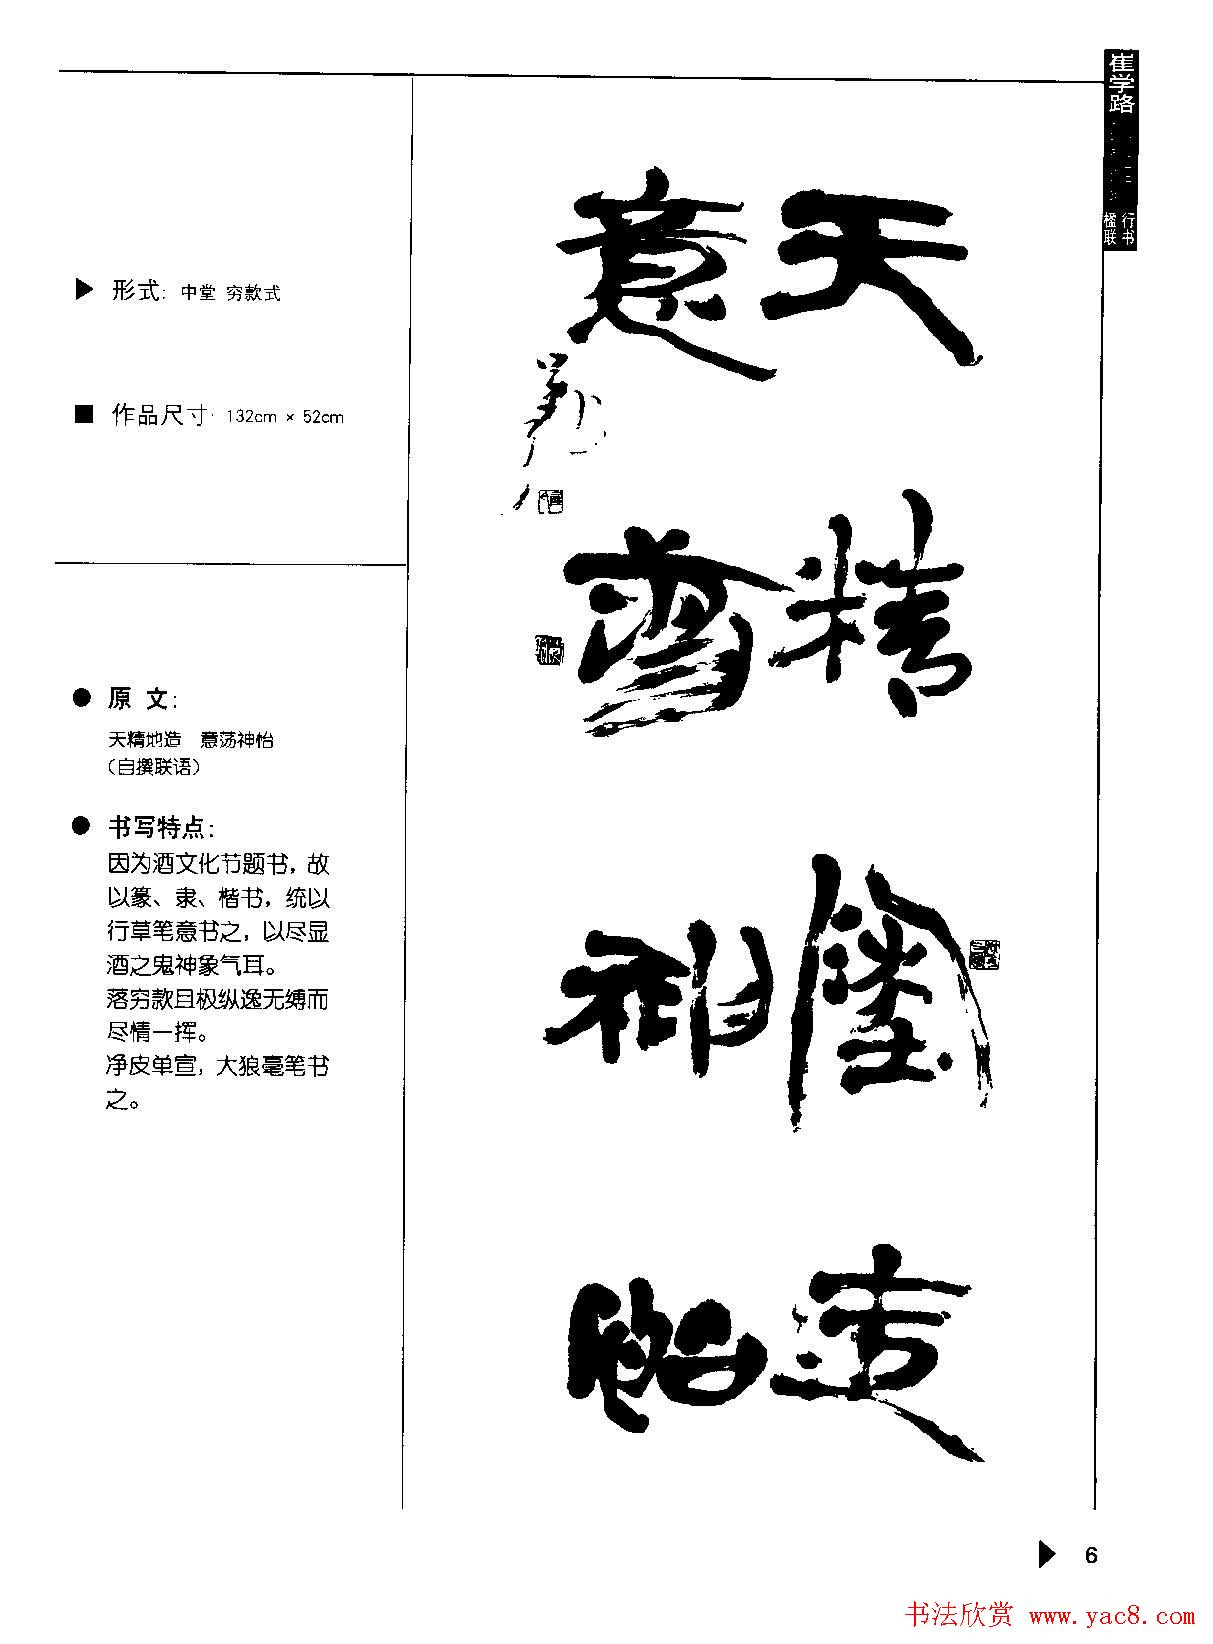 崔学路
行书
楹联
形式: 中堂 穷款式
作品尺寸· 132cm × 52cm
原 文:
天精地造 意荡神怡
(自撰联语)
书写特点:
因为酒文化节题书，故
以篆、隶、楷书，统以
行草笔意书之，以尽显
酒之鬼神象气耳。
落穷款且极纵逸无缚而
尽情一挥。
净皮单宣，大狼毫笔书
之。
天精地造
意荡神怡
6
书法欣赏 www.yac8.com